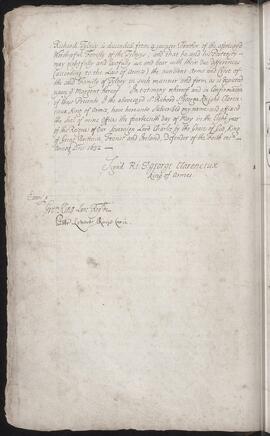 Richard Tolsey is descended from a younger Brother of the aforesaid
Worshipful Family of the Tolseys, and that he and his Posterity
may rightfully and lawfully use and bear with their due differences
(according to the Law of Armes) the auntient Armes and Crest of
the said Family of Tolsey in such manner and form as is depicted
upon ye Margent hereof. In testimony whereof and in Confirmation
of these Presents I the aforesaid Sr Richard St George Knight Claren
ceux King of Armes, have hereunto subscribed my name and affixed
the Seal of mine Office the fourteenth day of May in the Eight year
of the Reign of our Sovereign Lord Charles by the Grace of God, King
of Great Brittain, France and Ireland, Defender of the Faith &c
Anno Dni 1632
Signd Ri: St George Clarenceux
King of Armes
Examd
Gre: King Lanc